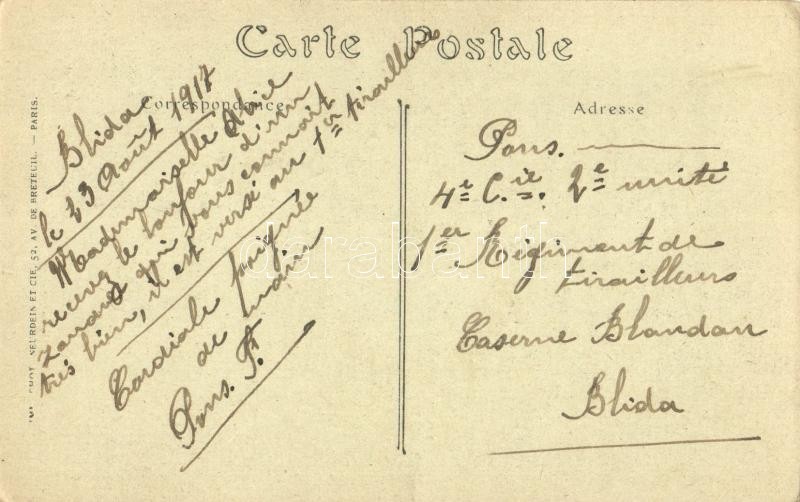 Carte Postale
Correspondance
Blida
le 23 Août 1917
Mademoiselle Alice
recevez le bonjour d'un
Zouave qui vous connait
très bien, il est versé au 1er tirailleurs
Cordiale poignée
de main
Pons. F.
Adresse
Pons.
4e Cie. 2e unité
1er Régiment de
tirailleurs
Caserne Blandan
Blida
NEURDEIN ET CIE, 52, AV. DE BRETEUIL. — PARIS.
darabanth